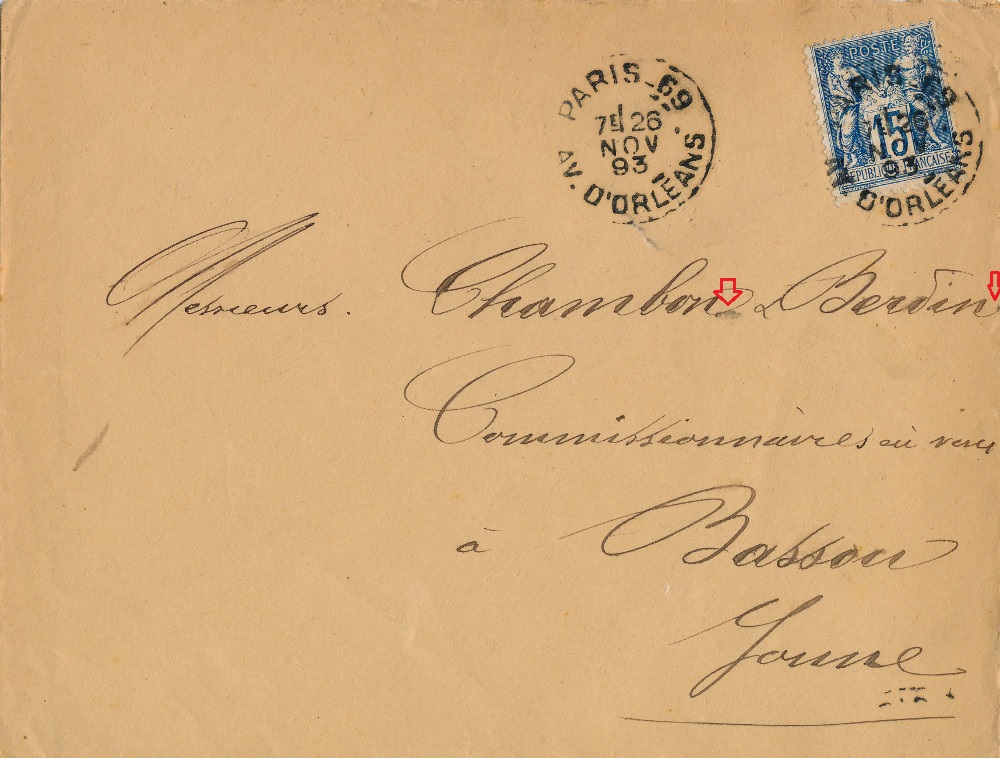 PARIS_69
7E 26
NOV
93
AV. D'ORLEANS
POSTE
15
REPUBLIQUE FRANCAISE
PARIS 69
7E 26
NOV
93
AV. D'ORLEANS
Messieurs. Chambon & Berdin
Commissionnaires en vins
à Basson
Yonne